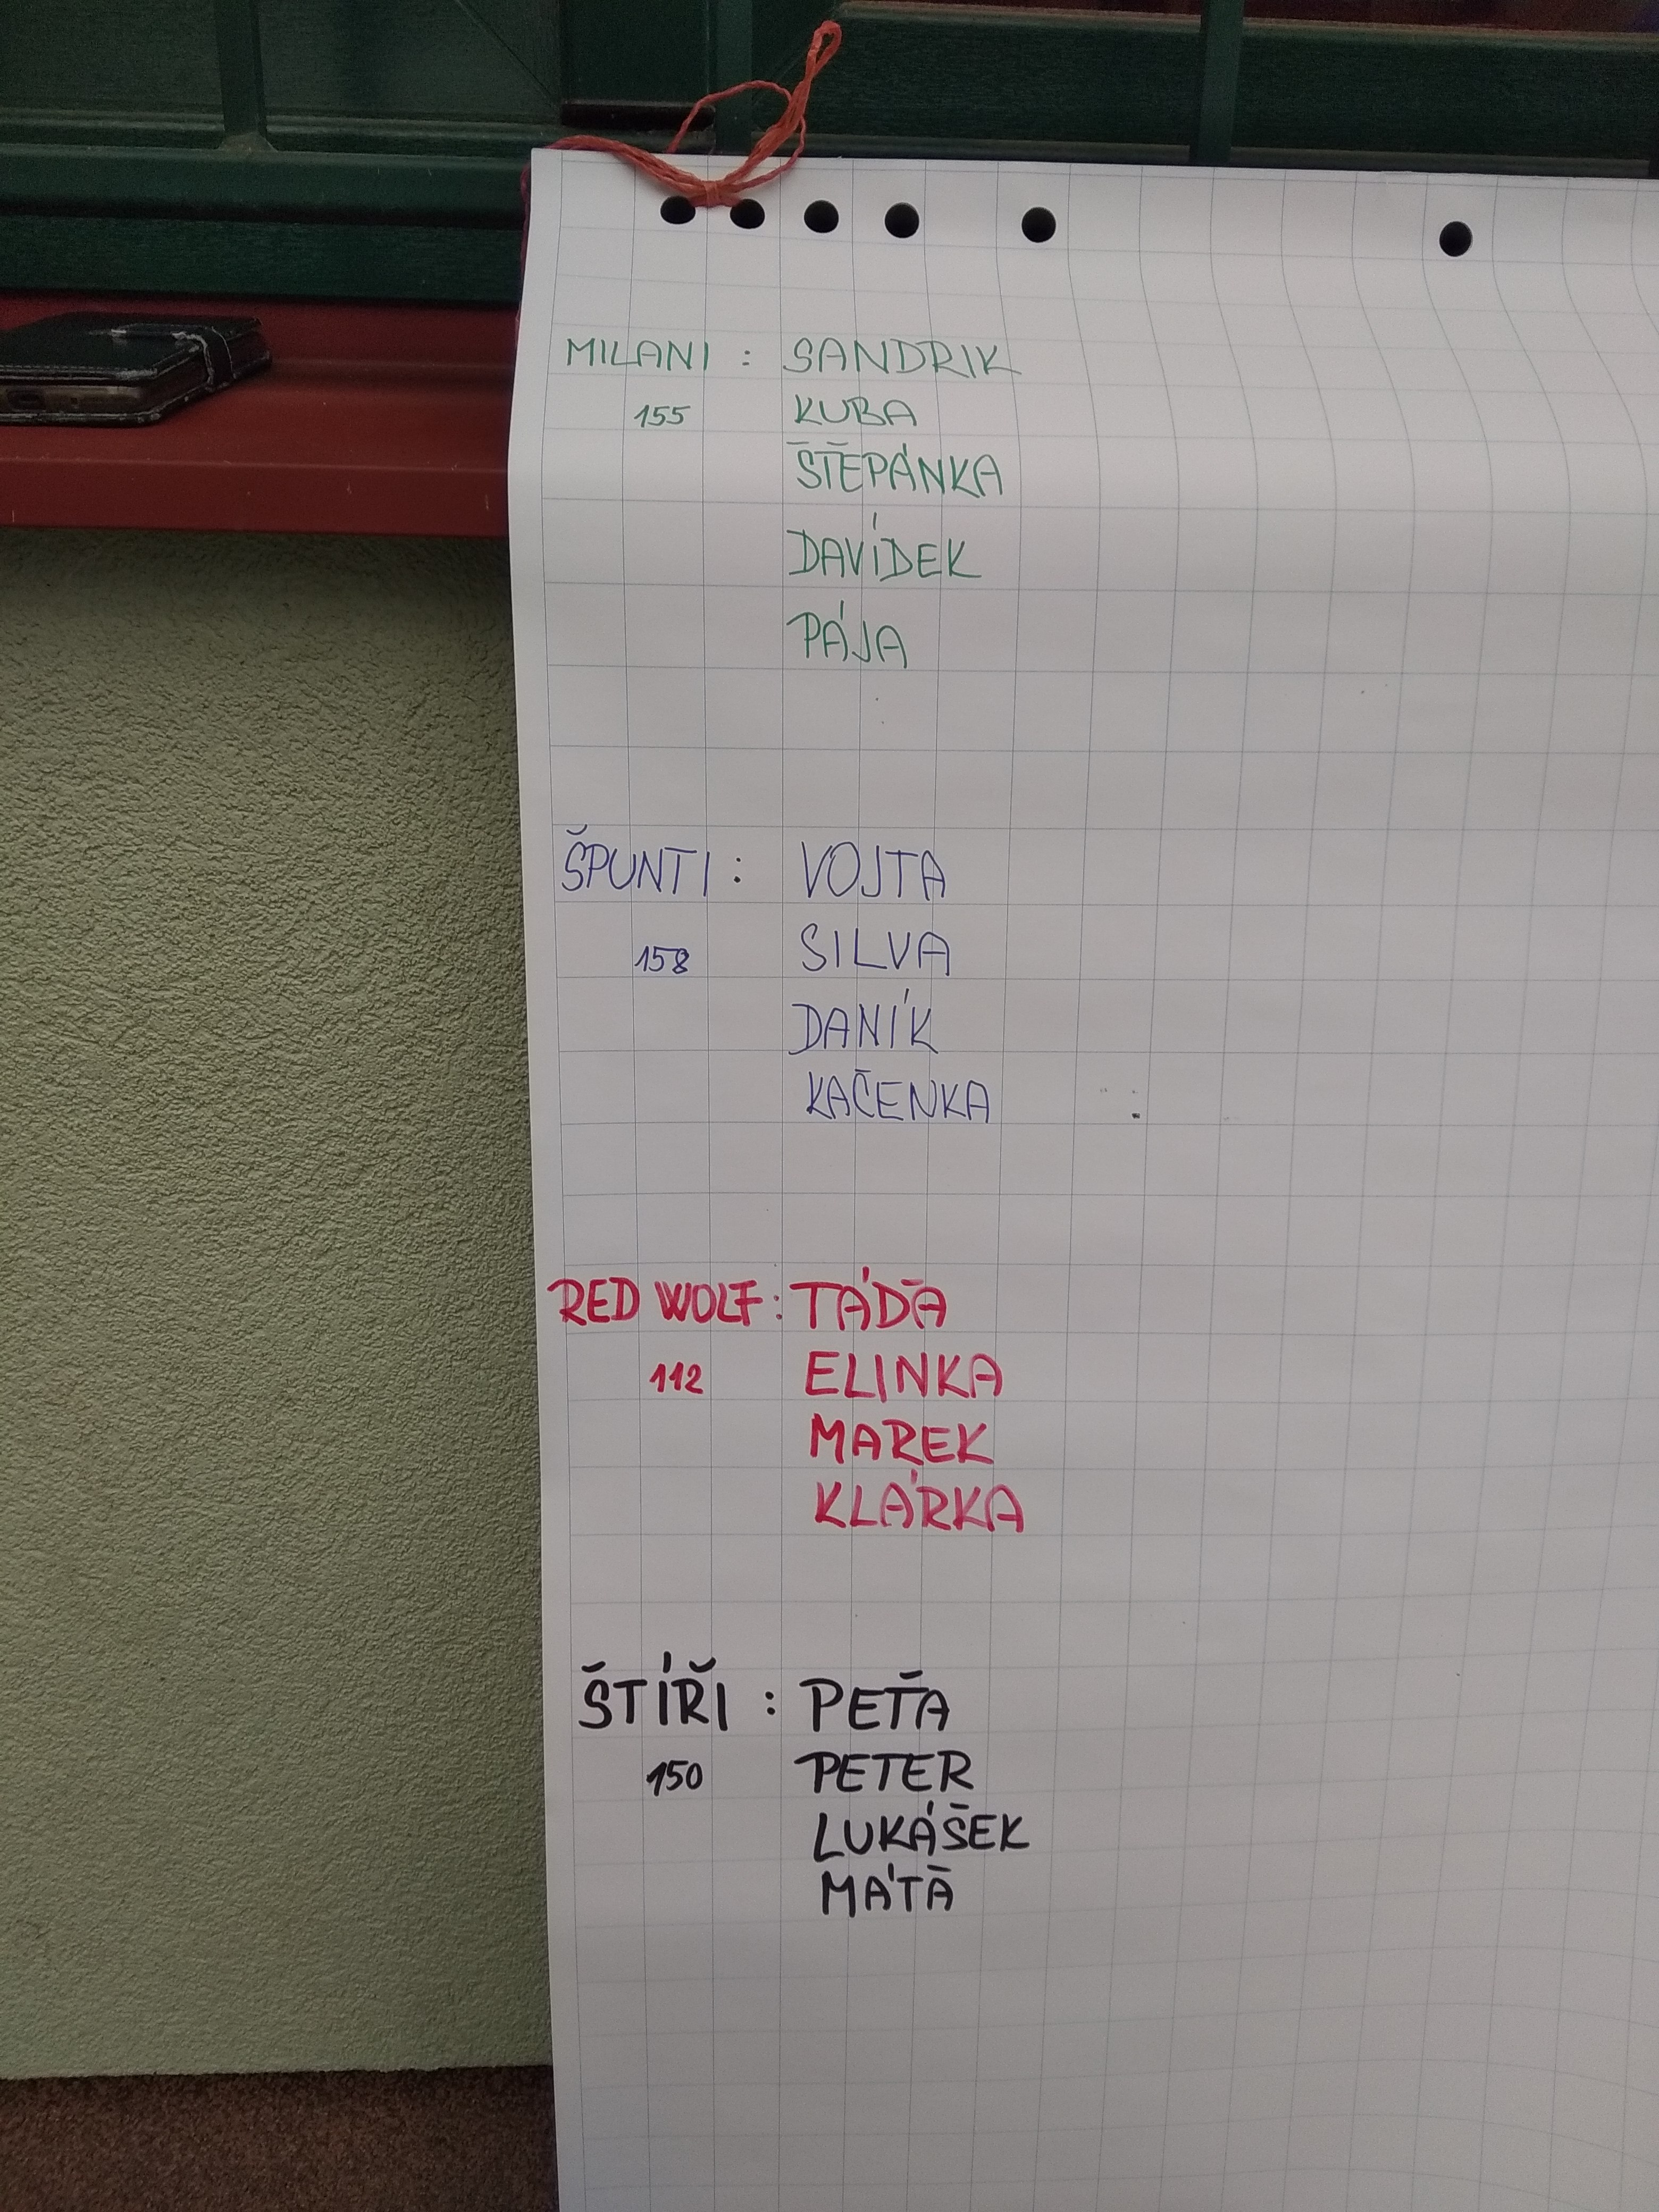 MILANI : SANDRIK
155 KUBA
ŠTĚPÁNKA
DAVÍDEK
PÁJA
ŠPUNTI : VOJTA
158 SILVA
DANÍK
KAČENKA
RED WOLF : TÁĎA
112 ELINKA
MAREK
KLÁRKA
ŠTÍŘI : PEŤA
150 PETER
LUKÁŠEK
MÁŤA